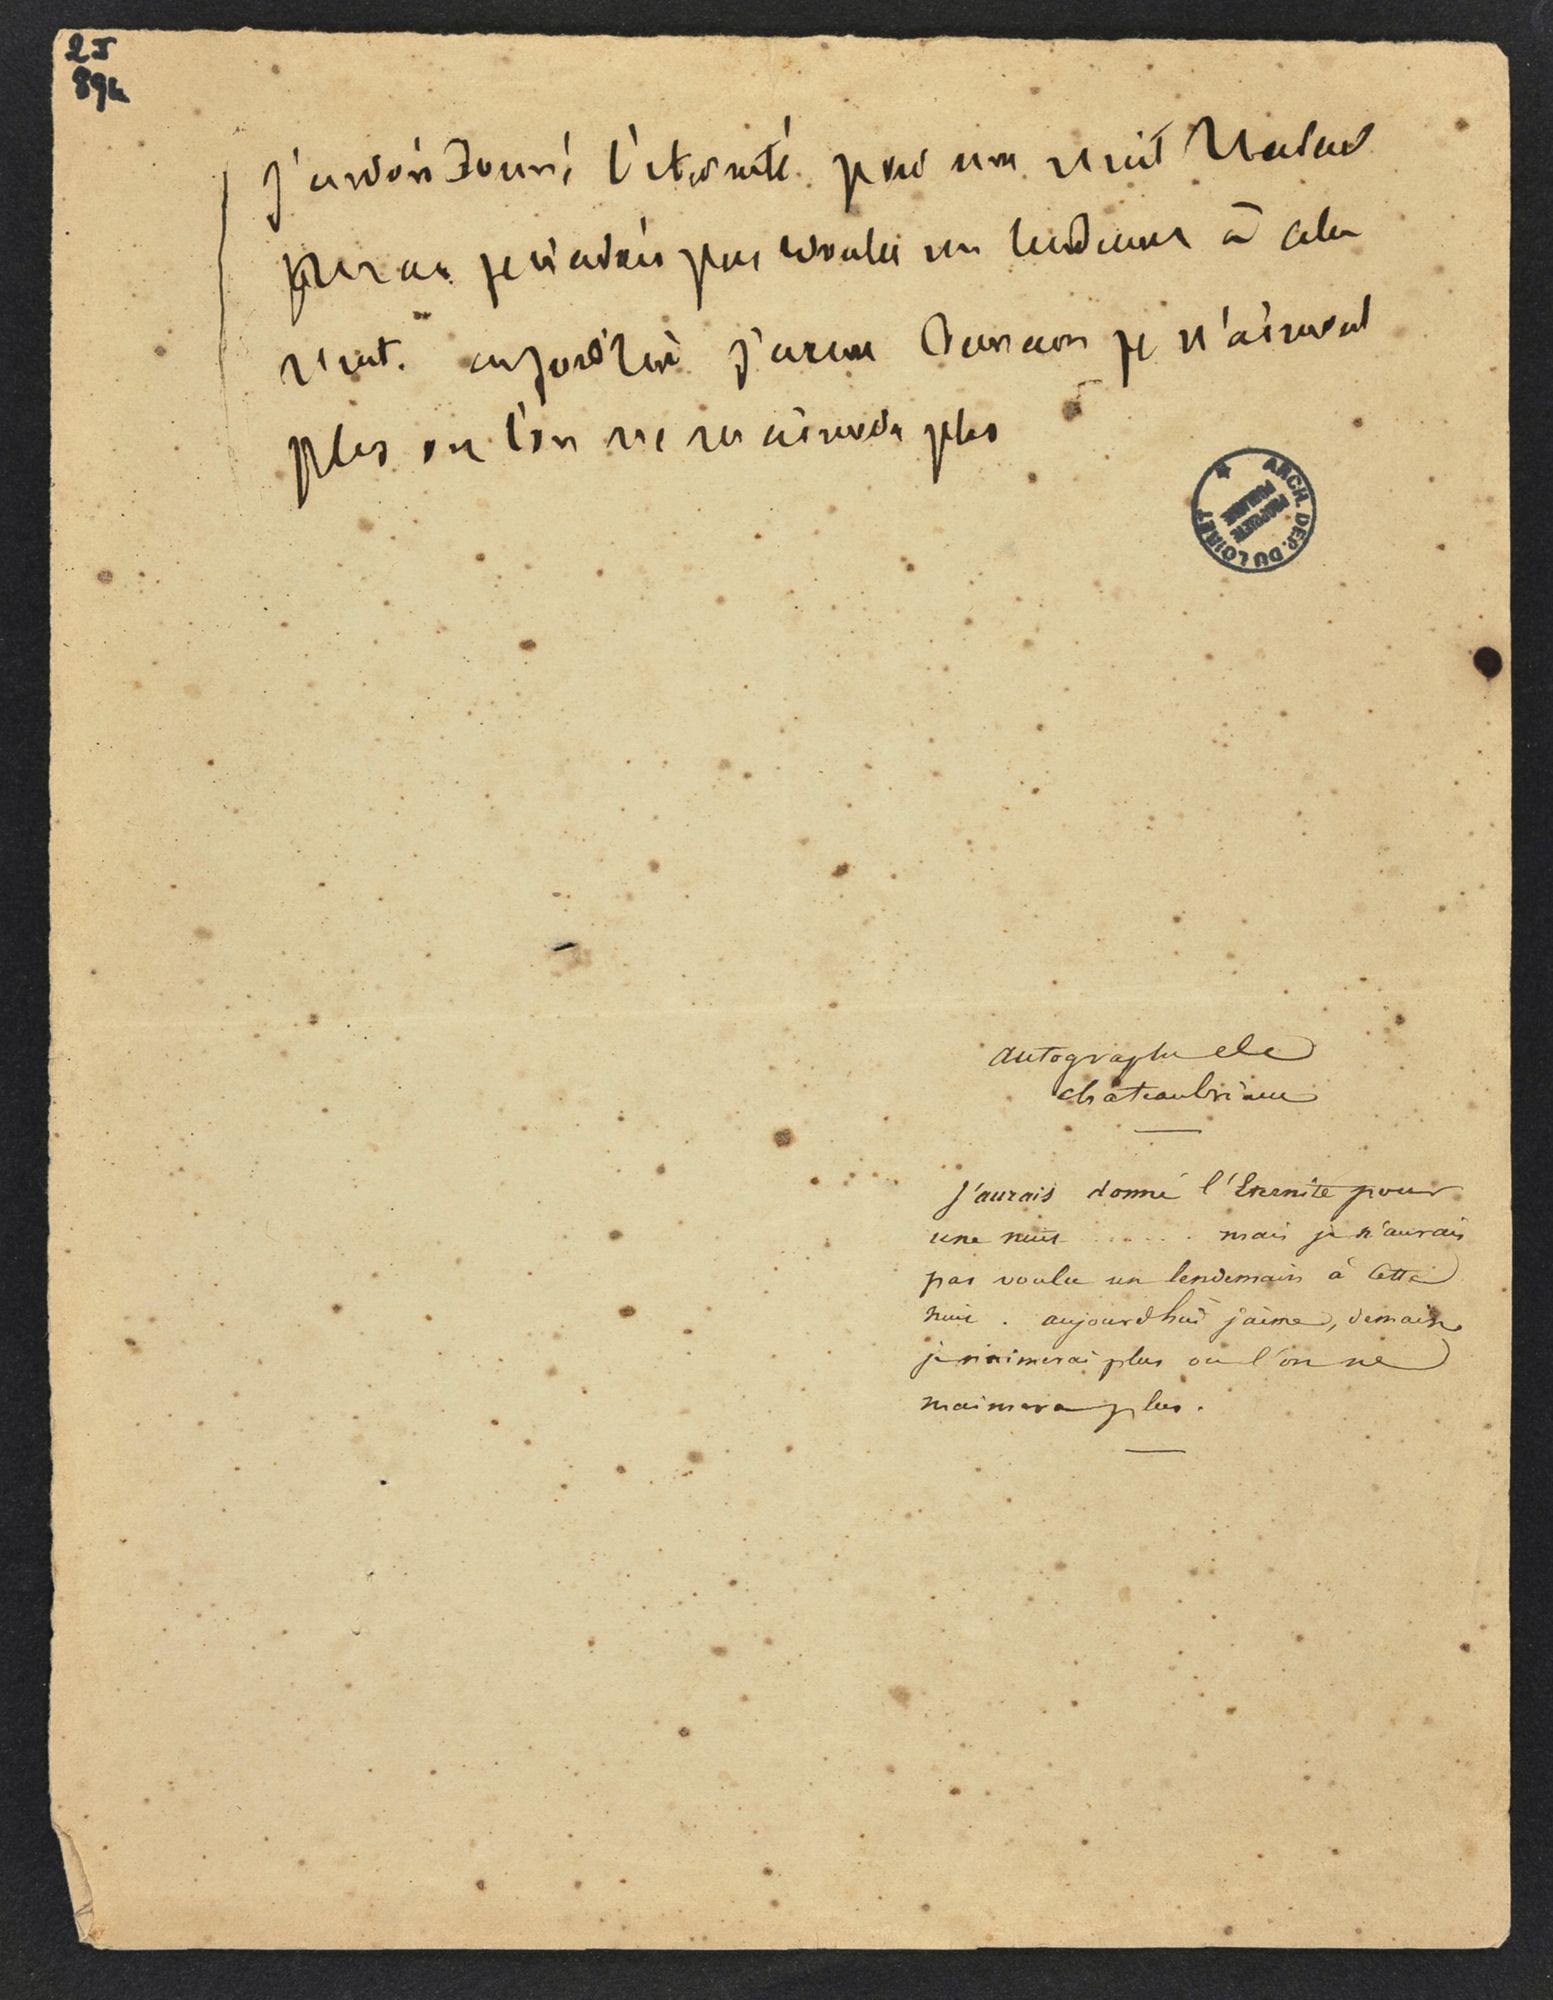 2J
894
J'aurois donné l'éternité pour une nuit
je n'aurois pas voulu un lendemain à cette
nuit. aujourd'hui j'aime demain je n'aimerai
plus ou l'on ne m'aimera plus
ARCH. DEP. DU LOIRET
PROPRIETE
PUBLIQUE
autographe de
chateaubriand
J'aurais donné l'Eternité pour
une nuit ...... mais je n'aurais
pas voulu un lendemain à cette
nuit. aujourd'hui j'aime, demain
je n'aimerai plus ou l'on ne
m'aimera plus.